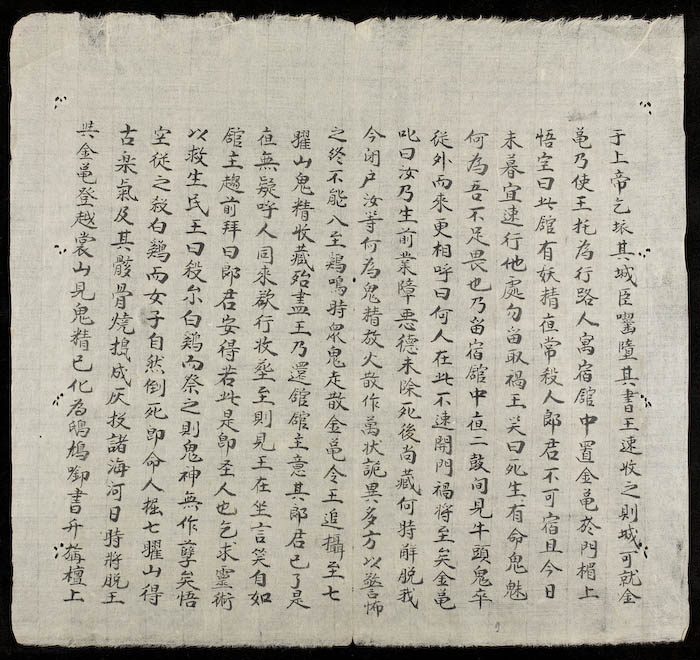 于上帝乞坼其城臣囓墮其書王速收之則城可就金
龟乃使王托為行路人寓宿舘中置金龟於門楣上
悟空曰此舘有妖精夜常殺人郎君不可宿且今日
未暮宜速行他處勿畄取禍王笑曰死生有命鬼魅
何為吾不足畏也乃畄宿舘中夜二鼓间見牛頭鬼卒
從外而來更相呼曰何人在此不速開門禍將至矣金龟
叱曰汝乃生前業障悪德未除死後尚藏何時觧脱我
今闭户汝等何為鬼精放火散作萬狀詭異多方以驚怖
之终不能入至鷄鳴時衆鬼走散金龟令王追攝至七
耀山鬼精收藏殆盡王乃還舘舘主意其郎君已了是
夜無疑呼人同來欲行收𦵏至則見王在坐言笑自如
舘主趨前拜曰郎君安得若此是即圣人也乞求靈術
以救生民王曰殺尒白鷄而祭之則鬼神無作孽矣悟
空從之殺白鷄而女子自然倒死即命人掘七耀山得
古楽氣及其骸骨燒搗成灰投諸海河日時將脱王
共金龟登越裳山見鬼精已化為鴟鳩啣書升旃檀上